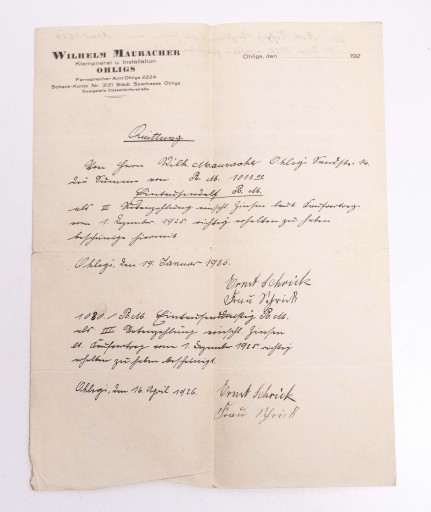 WILHELM MAURACHER
Klempnerei u. Installation
OHLIGS
Fernsprecher Amt Ohligs 2224
Scheck-Konto Nr. 2121 Städt. Sparkasse Ohligs
Zweigstelle Düsseldorferstraße
Ohligs, den 192
Quittung
Von Herrn Wilh. Mauracher Ohligs
die Summe von R. M. 1011
Eintausendelf R. M.
als II Ratenzahlung einschl. Zinsen laut Kaufvertrag
vom 1. Dezember 1925 richtig erhalten zu haben
bescheinige hiermit
Ohligs, den 19. Januar 1926.
Ernst Schrick
Frau Schrick
1080 R.M.
als III Ratenzahlung einschl. Zinsen
lt. Kaufvertrag vom 1. Dezember 1925 richtig
erhalten zu haben bescheinigt
Ohligs, den 16. April 1926
Ernst Schrick
Frau Schrick